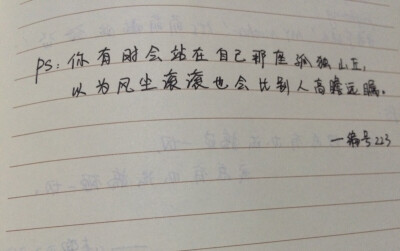 PS：你有时会站在自己那座孤独山丘，
以为风尘滚滚也会比别人高瞻远瞩。
—编号223